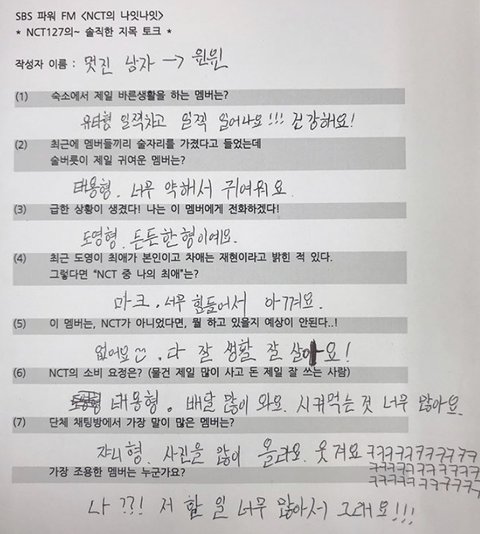 SBS 파워 FM <NCT의 나잇나잇>
* NCT127의~ 솔직한 지목 토크 *
작성자 이름 : 멋진 남자 → 윈윈
(1) 숙소에서 제일 바른생활을 하는 멤버는?
유타형 일찍자고 일찍 일어나요!!! 건강해요!
(2) 최근에 멤버들끼리 술자리를 가졌다고 들었는데
술버릇이 제일 귀여운 멤버는?
태용형. 너무 약해서 귀여워요
(3) 급한 상황이 생겼다! 나는 이 멤버에게 전화하겠다!
도영형. 든든한 형이에요.
(4) 최근 도영이 최애가 본인이고 차애는 재현이라고 밝힌 적 있다.
그렇다면 "NCT 중 나의 최애"는?
마크. 너무 힘들어서 아껴요.
(5) 이 멤버는, NCT가 아니었다면, 뭘 하고 있을지 예상이 안된다..!
없어요 다 잘 생활 잘 살아요!
(6) NCT의 소비 요정은? (물건 제일 많이 사고 돈 제일 잘 쓰는 사람)
태용형. 배달 많이 와요. 시켜먹는 것 너무 많아요.
(7) 단체 채팅방에서 가장 말이 많은 멤버는?
쟈니형. 사진을 많이 올려요. 웃겨요 ㅋㅋㅋㅋㅋㅋㅋㅋㅋ
ㅋㅋㅋㅋㅋㅋㅋㅋㅋ
ㅋㅋㅋㅋㅋㅋㅋㅋㅋ
가장 조용한 멤버는 누군가요?
나??! 저 할 일 너무 많아서 그래요!!!